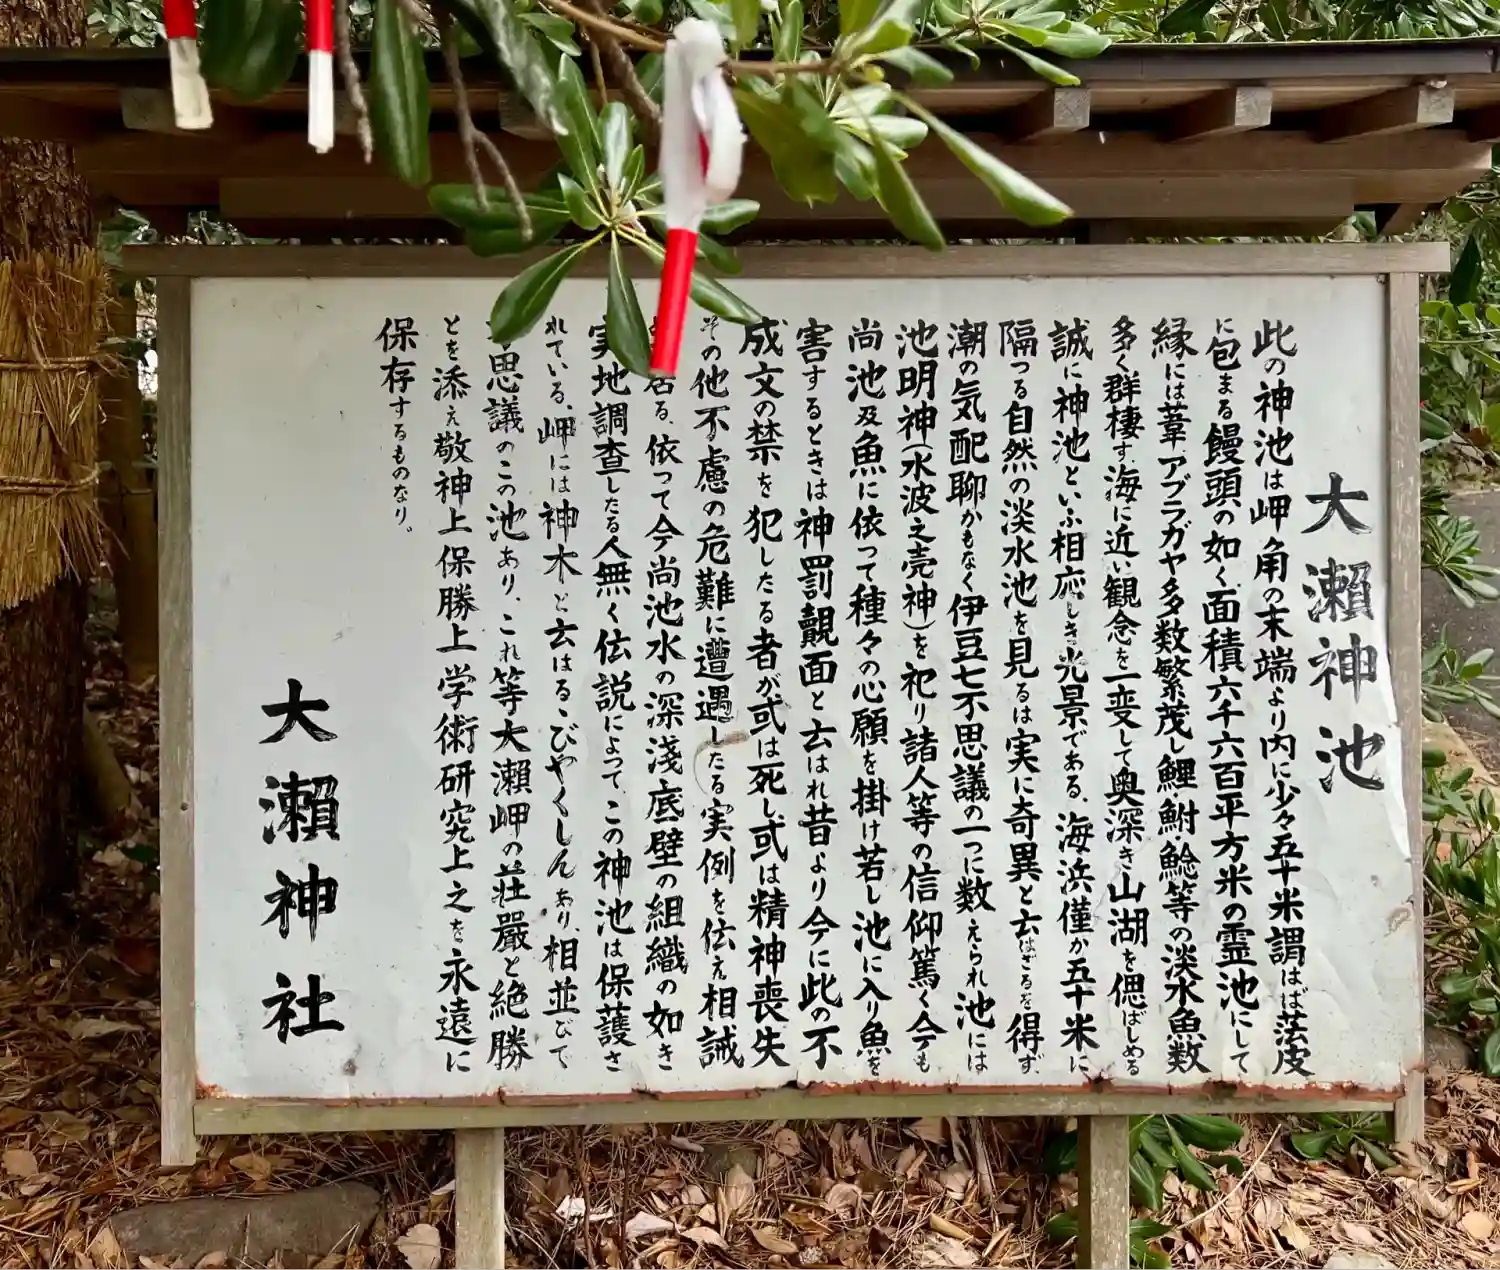 大瀬神池
此の神池は岬角の末端より内に少々五十米謂はば菠皮
に包まる饅頭の如く、面積六千六百平方米の霊池にして
縁には葦、アブラガヤ多数繁茂し鯉鮒、鯰等の淡水魚数
多く群棲す、海に近い観念を一変して奥深き山湖を偲ばしめる
誠に神池といふ相応しき光景である、海浜僅か五十米に
隔つる自然の淡水池を見るは実に奇異と云はざるを得ず、
潮の気配聊かもなく伊豆七不思議の一つに数えられ池には
池明神(水波之売神)を祀り諸人等の信仰篤く今も
尚池及魚に依って種々の心願を掛け若し池に入り魚を
害するときは神罰覿面と云はれ昔より今に此の不
成文の禁を犯したる者が或は死し、或は精神喪失
その他不慮の危難に遭遇したる実例を伝え相誡
居る、依って今尚池水の深浅底壁の組織の如き
実地調査したる人無く伝説によってこの神池は保護さ
れている、岬には神木と云はるゝびやくしんあり、相並びて
思議のこの池あり、これ等大瀬岬の荘厳と絶勝
とを添え敬神上保勝上学術研究上之を永遠に
保存するものなり。
大瀬神社